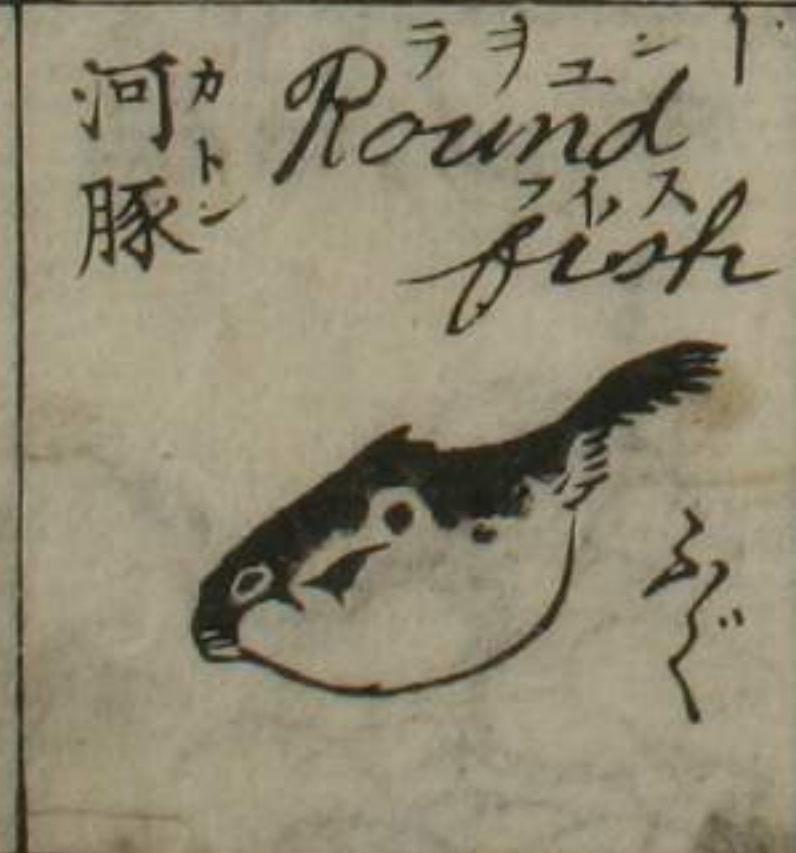 ラヲユンド
Round
フイス
fish
河豚
カトン
ふぐ